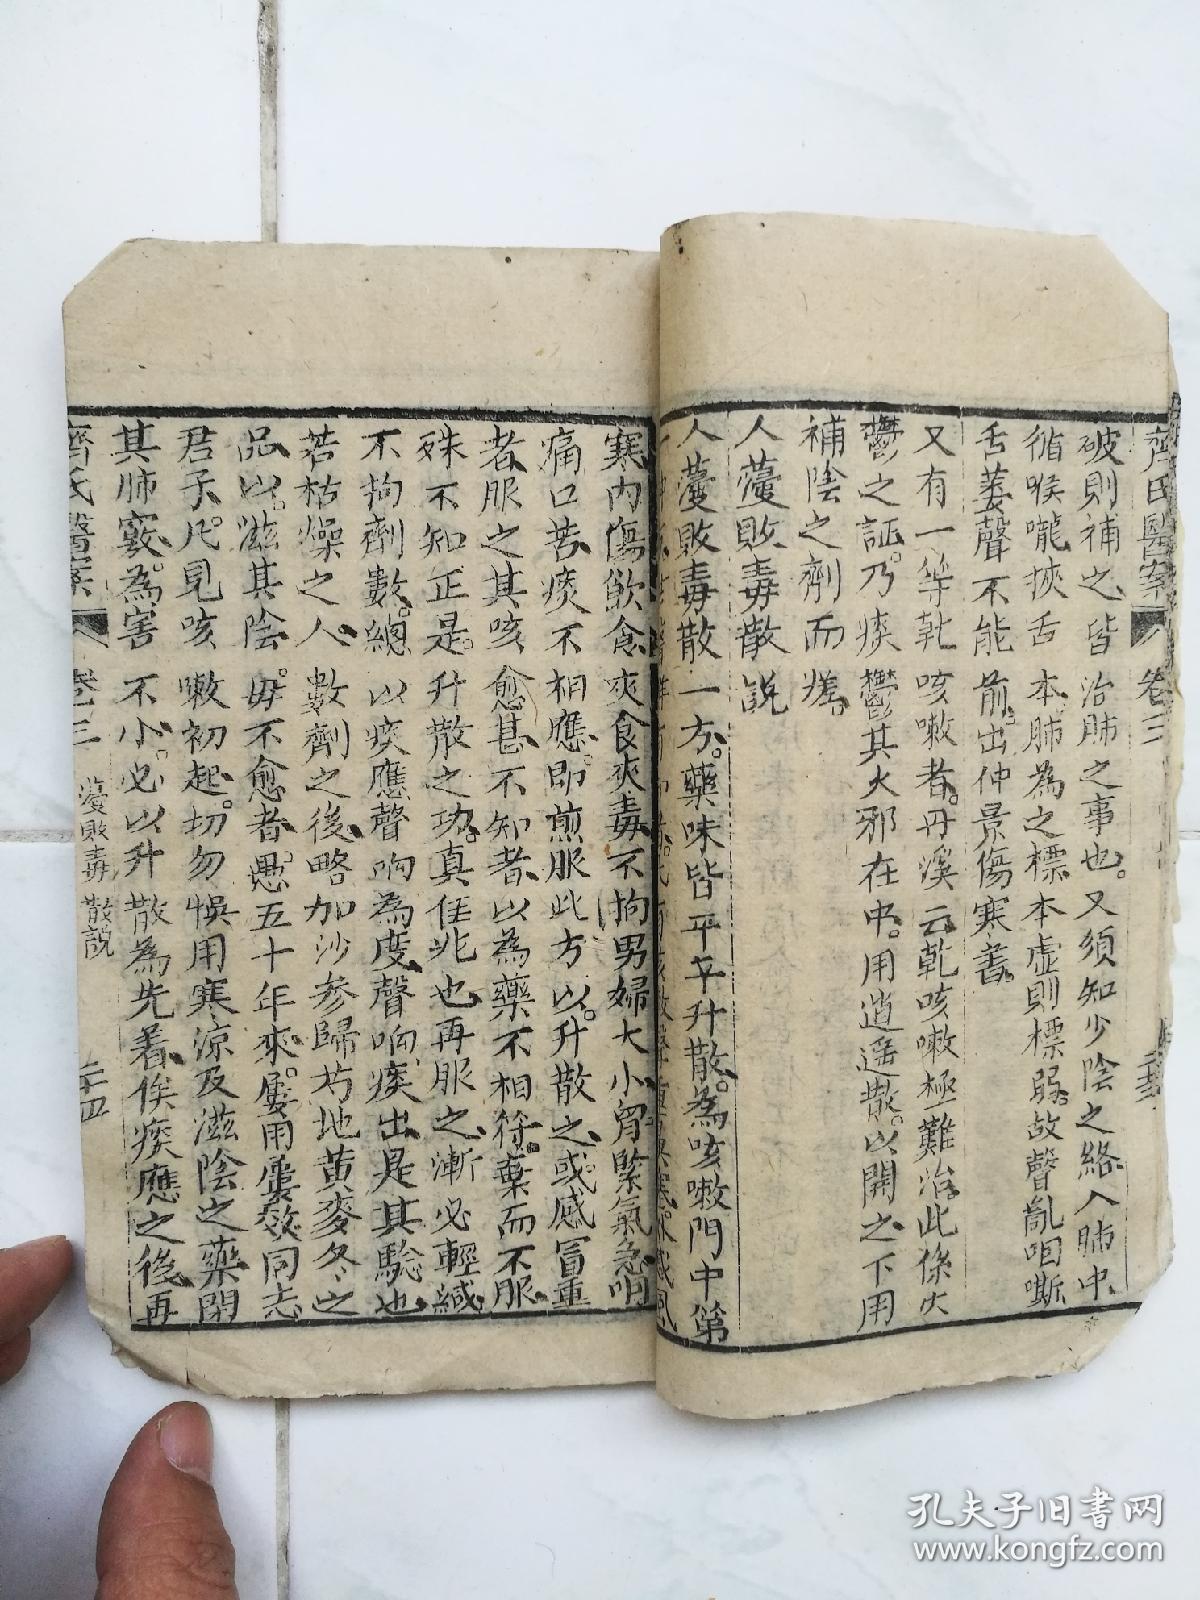 齊氏醫案 卷三
破則補之皆治肺之事也。又須知少陰之絡入肺中
循喉嚨挾舌本肺為之標本虛則標弱。故聲亂咽嘶
舌萎聲不能前。出仲景傷寒書。
又有一等乾咳嗽者。丹溪云乾咳嗽極難治此係火
鬱之証。乃痰鬱其火邪在中。用逍遥散。以開之下用
補陰之劑而瘥。
人葠敗毒散說
人葠敗毒散一方。藥味皆平平升散。為咳嗽門中第
寒內傷飲食夾食夾毒不拘男婦大小胃緊氣急咽
痛口苦痰不相應。即煎服此方以升散之。或感冒重
者服之其咳愈甚不知者以為藥不相符。棄而不服
殊不知正是升散之功。真佳兆也再服之漸必輕緘
不拘劑數。總以痰應聲响為度聲响痰出是其驗也
若枯燥之人數劑之後略加沙参歸芍地黄麥冬之
品以滋其陰。毋不愈者。愚五十年來。屡用屢效同志
君子。凡見咳嗽初起。切勿悞用寒涼及滋陰之藥閉
其肺竅。為害不小。必以升散為先着俟痰應之後再
齊氏醫案 卷三 葠敗毒散說 二十四
孔夫子旧书网
www.kongfz.com